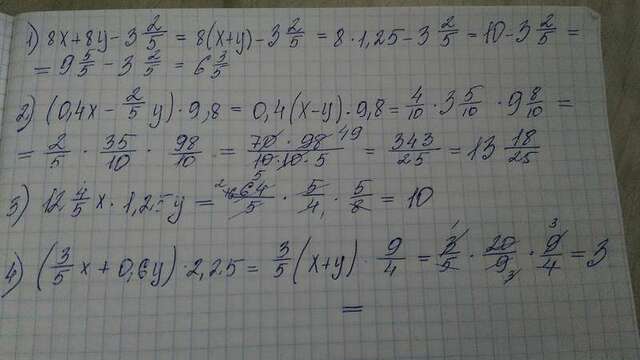 1) 8x+8y-3 2/5 = 8(x+y)-3 2/5 = 8·1,25-3 2/5 = 10-3 2/5 =
= 9 5/5 - 3 2/5 = 6 3/5
2) (0,4x - 2/5 y)·9,8 = 0,4(x-y)·9,8 = 4/10 · 3 5/10 · 9 8/10 =
= 2/5 · 35/10 · 98/10 = 70·98 49/10·10·5 5 = 343/25 = 13 18/25
3) 12 4/5 x · 1,25y = 64/5 · 5/4 · 5/8 = 10
4) (3/5 x + 0,6y)·2,25 = 3/5 (x+y) · 9/4 = 3/5 · 20/9 · 9/4 = 3
=